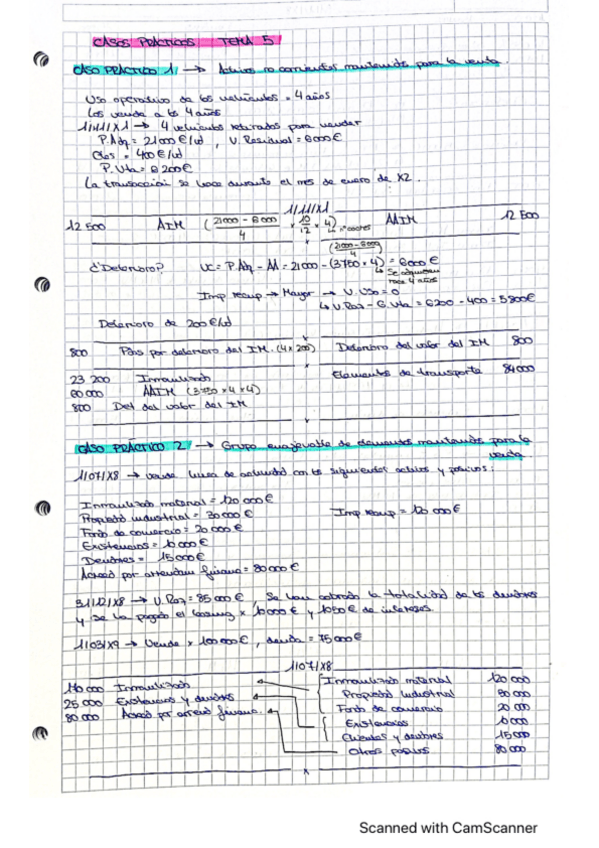 CASOS PRÁCTICOS TEMA 5
CASO PRÁCTICO 1 → Activos no corrientes mantenidos para la venta.
Uso operativo de los vehículos = 4 años
Los vende a los 4 años
1/11/X1 → 4 vehículos retirados para vender
P. Adq = 21000 €/ud, V. Residual = 6000 €
Ctos = 400 €/ud
P. Vta = 6200 €
La transacción se hace durante el mes de enero de X2.
1/11/X1
12 500 AIM ( 21000 - 6000 / 4 × 10/12 × 4) AAIM 12 500
↳ nº coches
(21000 - 6000) / 4
¿Deterioro? VC = P. Adq - AA = 21000 - (3750 × 4) = 6000 €
↳ Se adquieren hace 4 años
Imp recup → Mayor → V. Uso = 0
↳ V. Raz - G. Vta = 6200 - 400 = 5800 €
Deterioro de 200 €/ud
x
800 Pdas por deterioro del IM. (4 × 200) Deterioro del valor del IM 800
x
23 200 Inmovilizado Elementos de transporte 84 000
60 000 AAIM (3750 × 4 × 4)
800 Det del valor del IM
CASO PRÁCTICO 2 → Grupo enajenable de elementos mantenidos para la venta
1/07/X8 → vende línea de actividad con los siguientes activos y pasivos:
Inmovilizado material = 120 000 €
Propiedad industrial = 30 000 € Imp recup = 120 000 €
Fondo de comercio = 20 000 €
Existencias = 10 000 €
Deudores = 15 000 €
Acreed por arrendam financ = 80 000 €
31/12/X8 → V. Raz = 85 000 €, Se han cobrado la totalidad de los deudores
y se ha pagado el leasing × 10 000 € y 1050 € de intereses.
1/03/X9 → Vende × 100 000 €, deuda = 75 000 €
1/07/X8
Inmovilizado Inmovilizado material 120 000
25 000 Existencias y deudores Propiedad industrial
80 000 Acreed por arrend financ. Fondo de comercio 20 000
Existencias 10 000
Clientes y deudores 15 000
Otros pasivos 80 000
x
Scanned with CamScanner